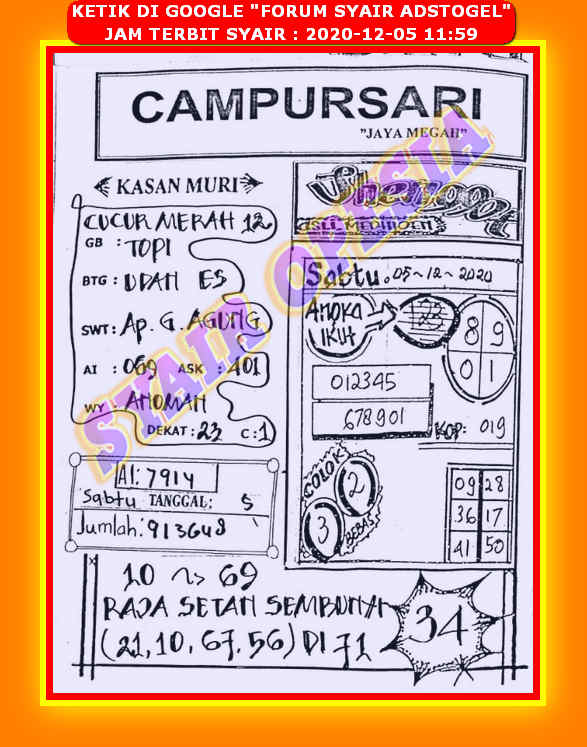 KETIK DI GOOGLE "FORUM SYAIR ADSTOGEL"
JAM TERBIT SYAIR : 2020-12-05 11:59
CAMPURSARI
"JAYA MEGAH"
KASAN MURI
CUCUR MERAH 12
GB : TOPI
BTG : UDAH ES
SWT: Ap. G. AGUNG
AI : 069 ASK : 401
WY : AHOMAH
DEKAT : 23 C : 1
AI: 7914
Sabtu TANGGAL: 5
Jumlah: 913648
ASLI
Sabtu. 05~12~2020
ANGKA
IKUT
123
8 9
0 1
012345
678901
KOP: 019
COLOK
2
3
BEBAS
09 28
36 17
41 50
10 ~> 69
RAJA SETAN SEMBUNYI
(21, 10, 67, 56) DI 71
34
SYAIR OPESIA